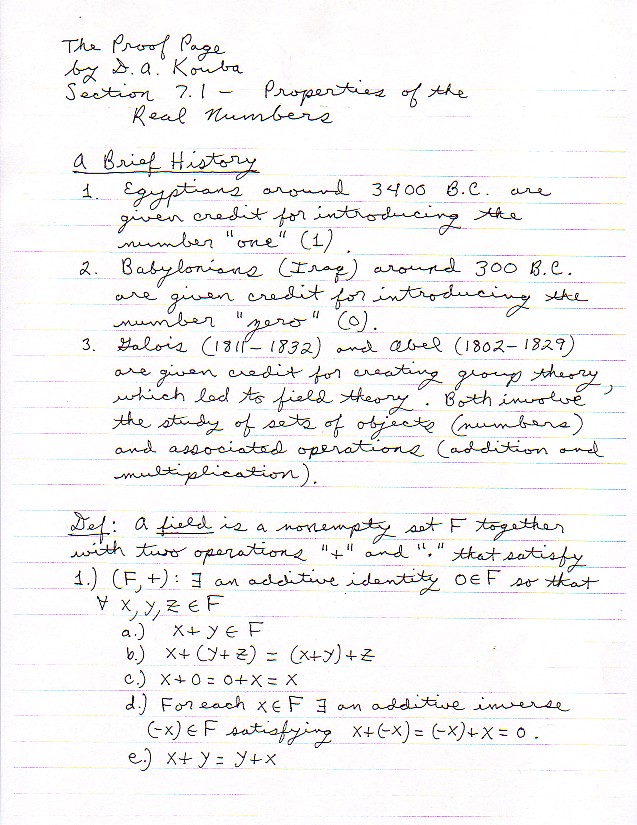 The Proof Page
by D. A. Kouba
Section 7.1 - Properties of the
Real Numbers
A Brief History
1. Egyptians around 3400 B.C. are
given credit for introducing the
number "one" (1).
2. Babylonians (Iraq) around 300 B.C.
are given credit for introducing the
number "zero" (0).
3. Galois (1811-1832) and Abel (1802-1829)
are given credit for creating group theory,
which led to field theory. Both involve
the study of sets of objects (numbers)
and associated operations (addition and
multiplication).
Def: A field is a nonempty set F together
with two operations "+" and "·" that satisfy
1.) (F,+): ∃ an additive identity 0∈F so that
∀ x, y, z ∈ F
a.) x+y ∈ F
b.) x+(y+z) = (x+y)+z
c.) x+0 = 0+x = x
d.) For each x∈F ∃ an additive inverse
(-x)∈F satisfying x+(-x) = (-x)+x = 0.
e.) x+y = y+x